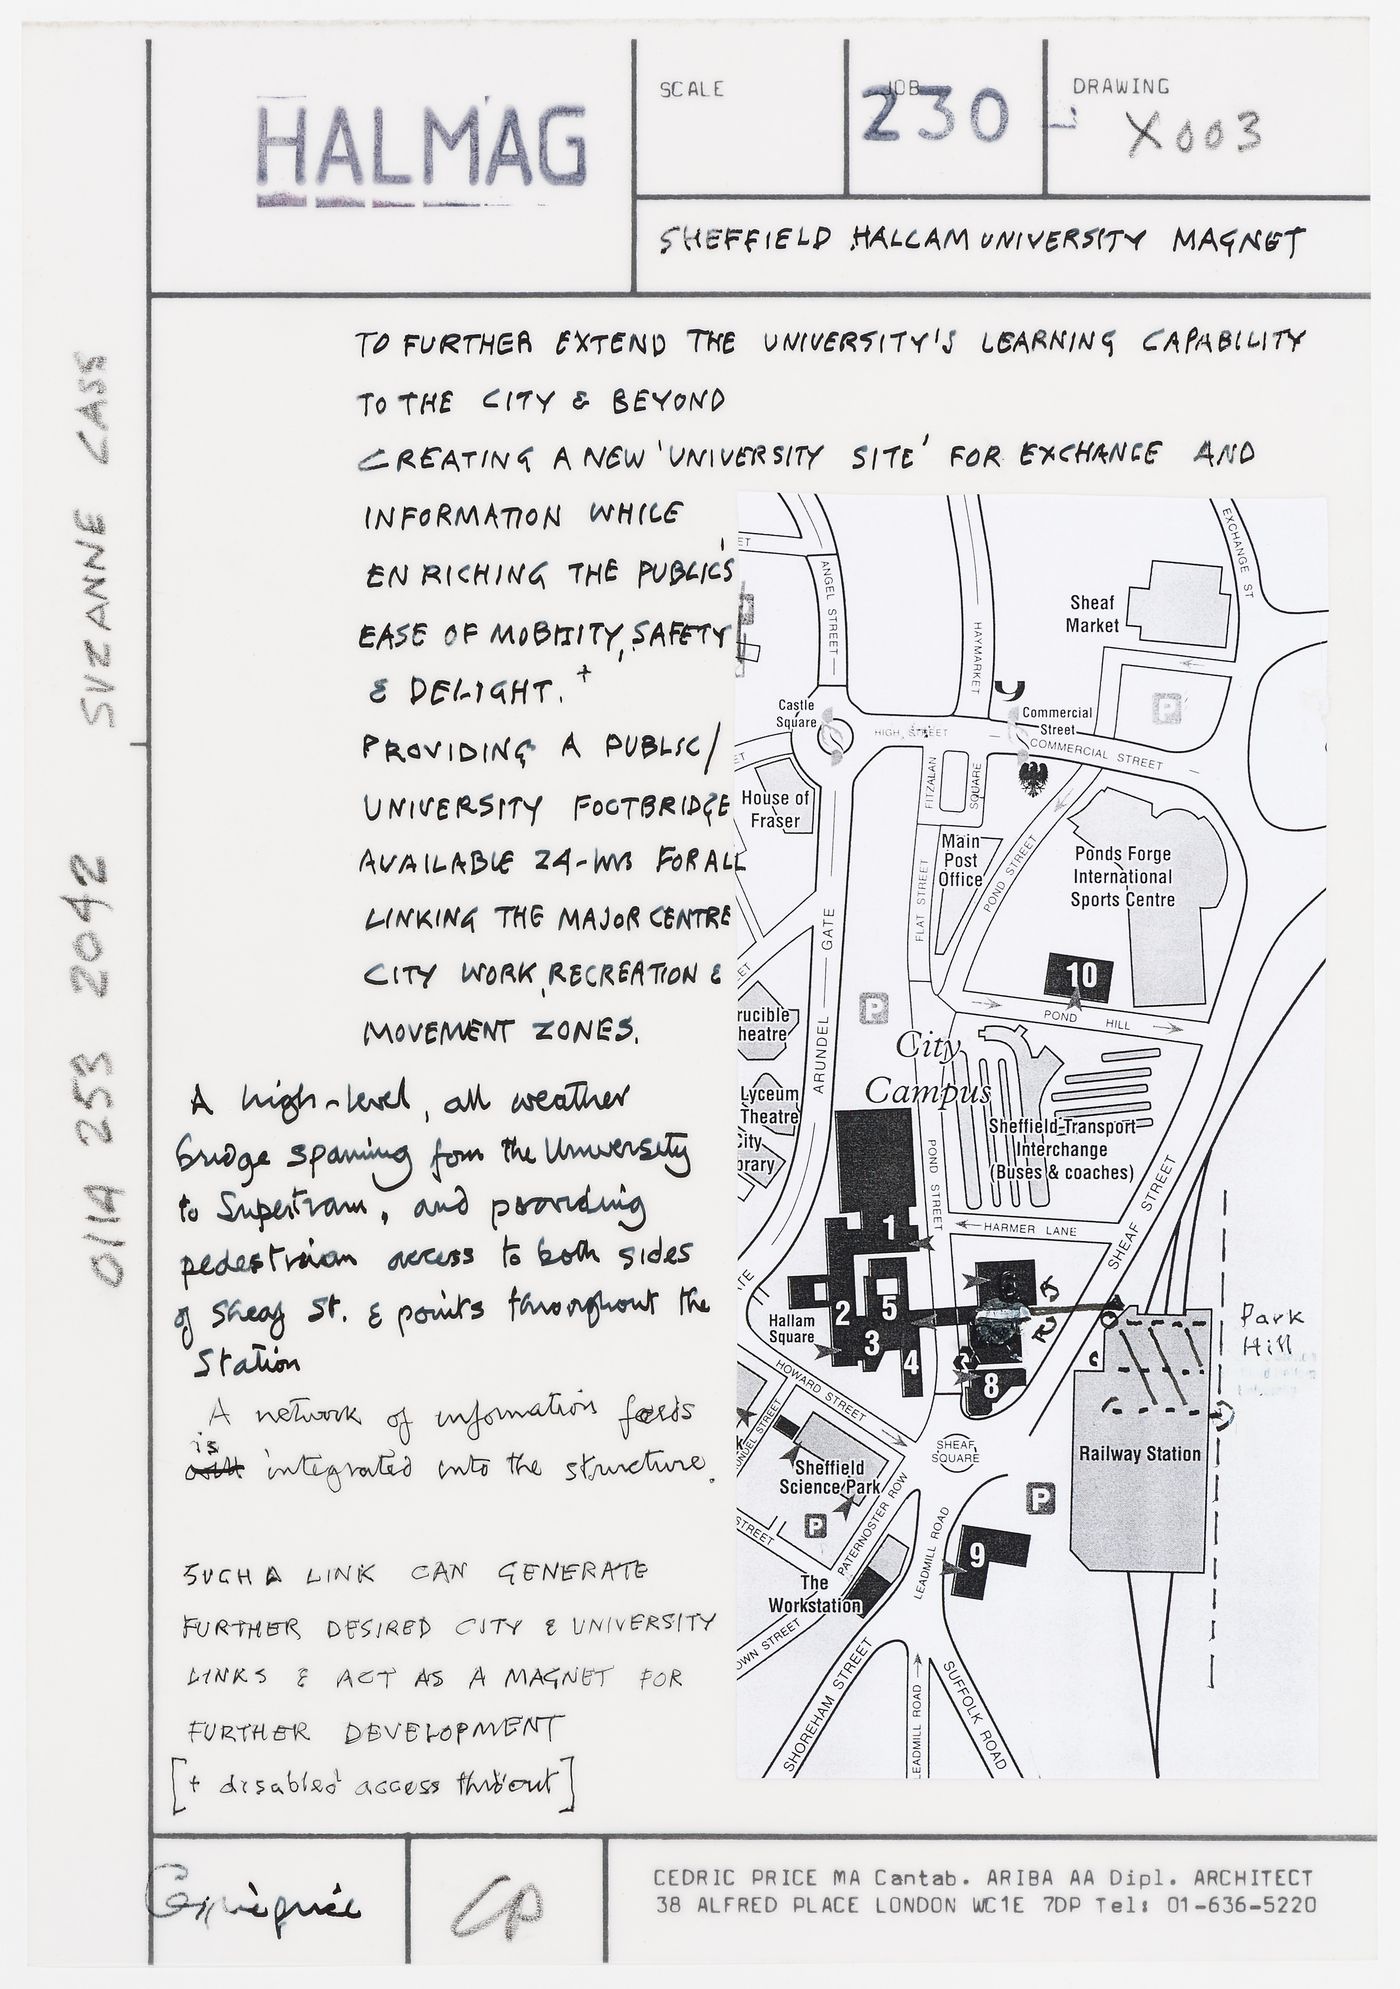 HALMAG
SCALE
JOB
230
DRAWING
X003
SHEFFIELD HALLAM UNIVERSITY MAGNET
SUZANNE CASS
0114 253 2042
TO FURTHER EXTEND THE UNIVERSITY'S LEARNING CAPABILITY
TO THE CITY & BEYOND
CREATING A NEW 'UNIVERSITY SITE' FOR EXCHANGE AND
INFORMATION WHILE
ENRICHING THE PUBLIC'S
EASE OF MOBILITY, SAFETY
& DELIGHT. +
PROVIDING A PUBLIC/
UNIVERSITY FOOTBRIDGE
AVAILABLE 24-hrs FOR ALL
LINKING THE MAJOR CENTRE
CITY WORK, RECREATION &
MOVEMENT ZONES.
A high-level, all weather
bridge spanning from the University
to Supertram, and providing
pedestrian access to both sides
of Sheaf St. & points throughout the
Station
A network of information feeds
is
integrated into the structure.
SUCH A LINK CAN GENERATE
FURTHER DESIRED CITY & UNIVERSITY
LINKS & ACT AS A MAGNET FOR
FURTHER DEVELOPMENT
[+ disabled access thro'out]
EXCHANGE ST
ET
ANGEL STREET
HAYMARKET
Sheaf
Market
P
Castle
Square
HIGH STREET
Commercial
Street
COMMERCIAL STREET
ET
FITZALAN
SQUARE
House of
Fraser
Main
Post
Office
POND STREET
Ponds Forge
International
Sports Centre
FLAT STREET
ARUNDEL GATE
10
ET
P
POND HILL
rucible
heatre
City
Campus
Lyceum
Theatre
City
brary
Sheffield Transport
Interchange
(Buses & coaches)
POND STREET
SHEAF STREET
1
HARMER LANE
TE
6
2
5
Hallam
Square
3
4
8
Park
Hill
HOWARD STREET
NDEL STREET
k
SHEAF
SQUARE
Railway Station
Sheffield
Science Park
P
P
STREET
PATERNOSTER ROW
LEADMILL ROAD
9
The
Workstation
OWN STREET
SHOREHAM STREET
LEADMILL ROAD
SUFFOLK ROAD
Cedric Price
CP
CEDRIC PRICE MA Cantab. ARIBA AA Dipl. ARCHITECT
38 ALFRED PLACE LONDON WC1E 7DP Tel: 01-636-5220